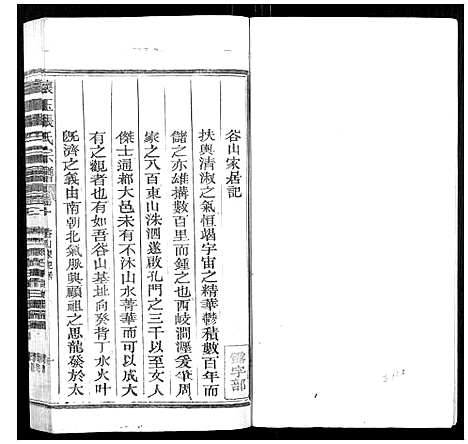 谷山家居記
扶輿清淑之氣恒竭宇宙之精華鬱積數百年而
儲之亦雄搆數百里而鍾之也西岐澗瀍爰肇周
家之八百東山洙泗遂啟孔門之三千以至文人
傑士通都大邑未有不沐山水菁華而可以成大
有之觀者也有如吾谷山基址向癸背丁水火叶
旣濟之義由南朝北氣脈與顧祖之思龍發於太
張氏
字部